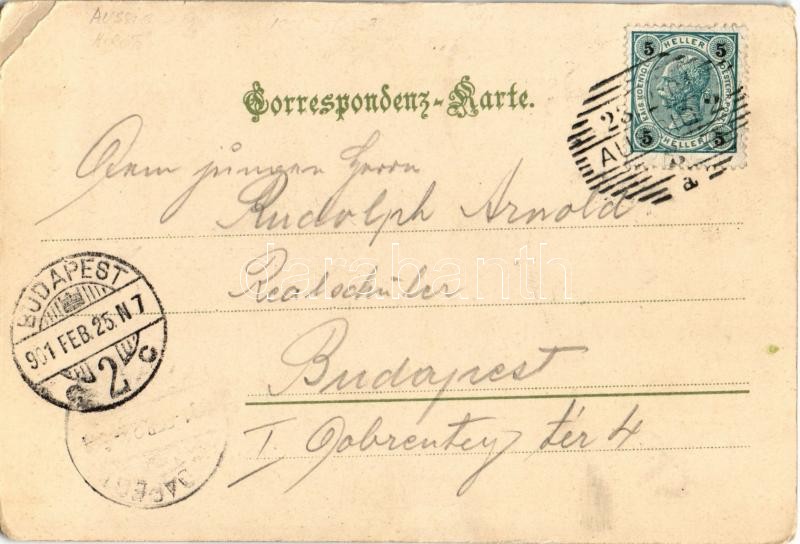 AUSSIG
5 HELLER 5
Correspondenz-Karte.
23
2
AU
a
5 HELLER 5
Dem jungen Herrn
Rudolph Arnold
darabanth
Realschüler
BUDAPEST
901 FEB. 25. N 7
2 c
Budapest
I. Döbrentey tér 4